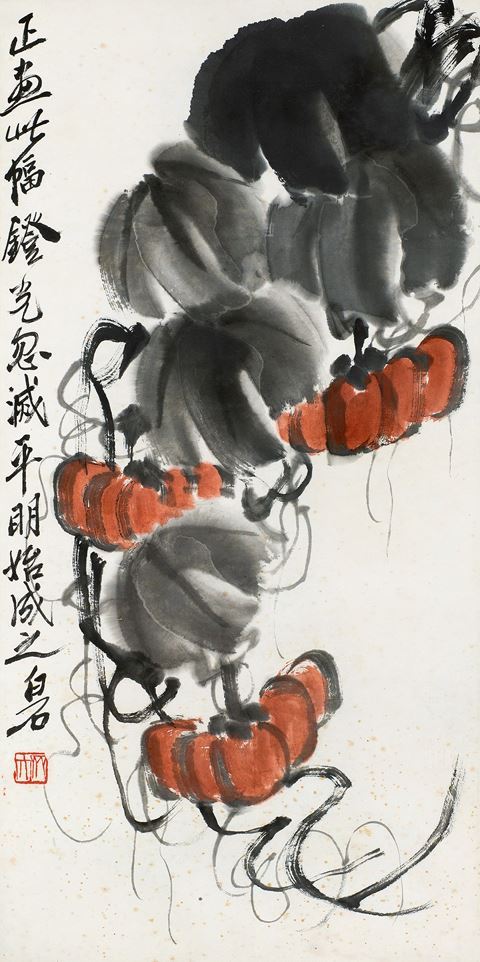 正畫此幅鐙光忽滅平明始成之白石